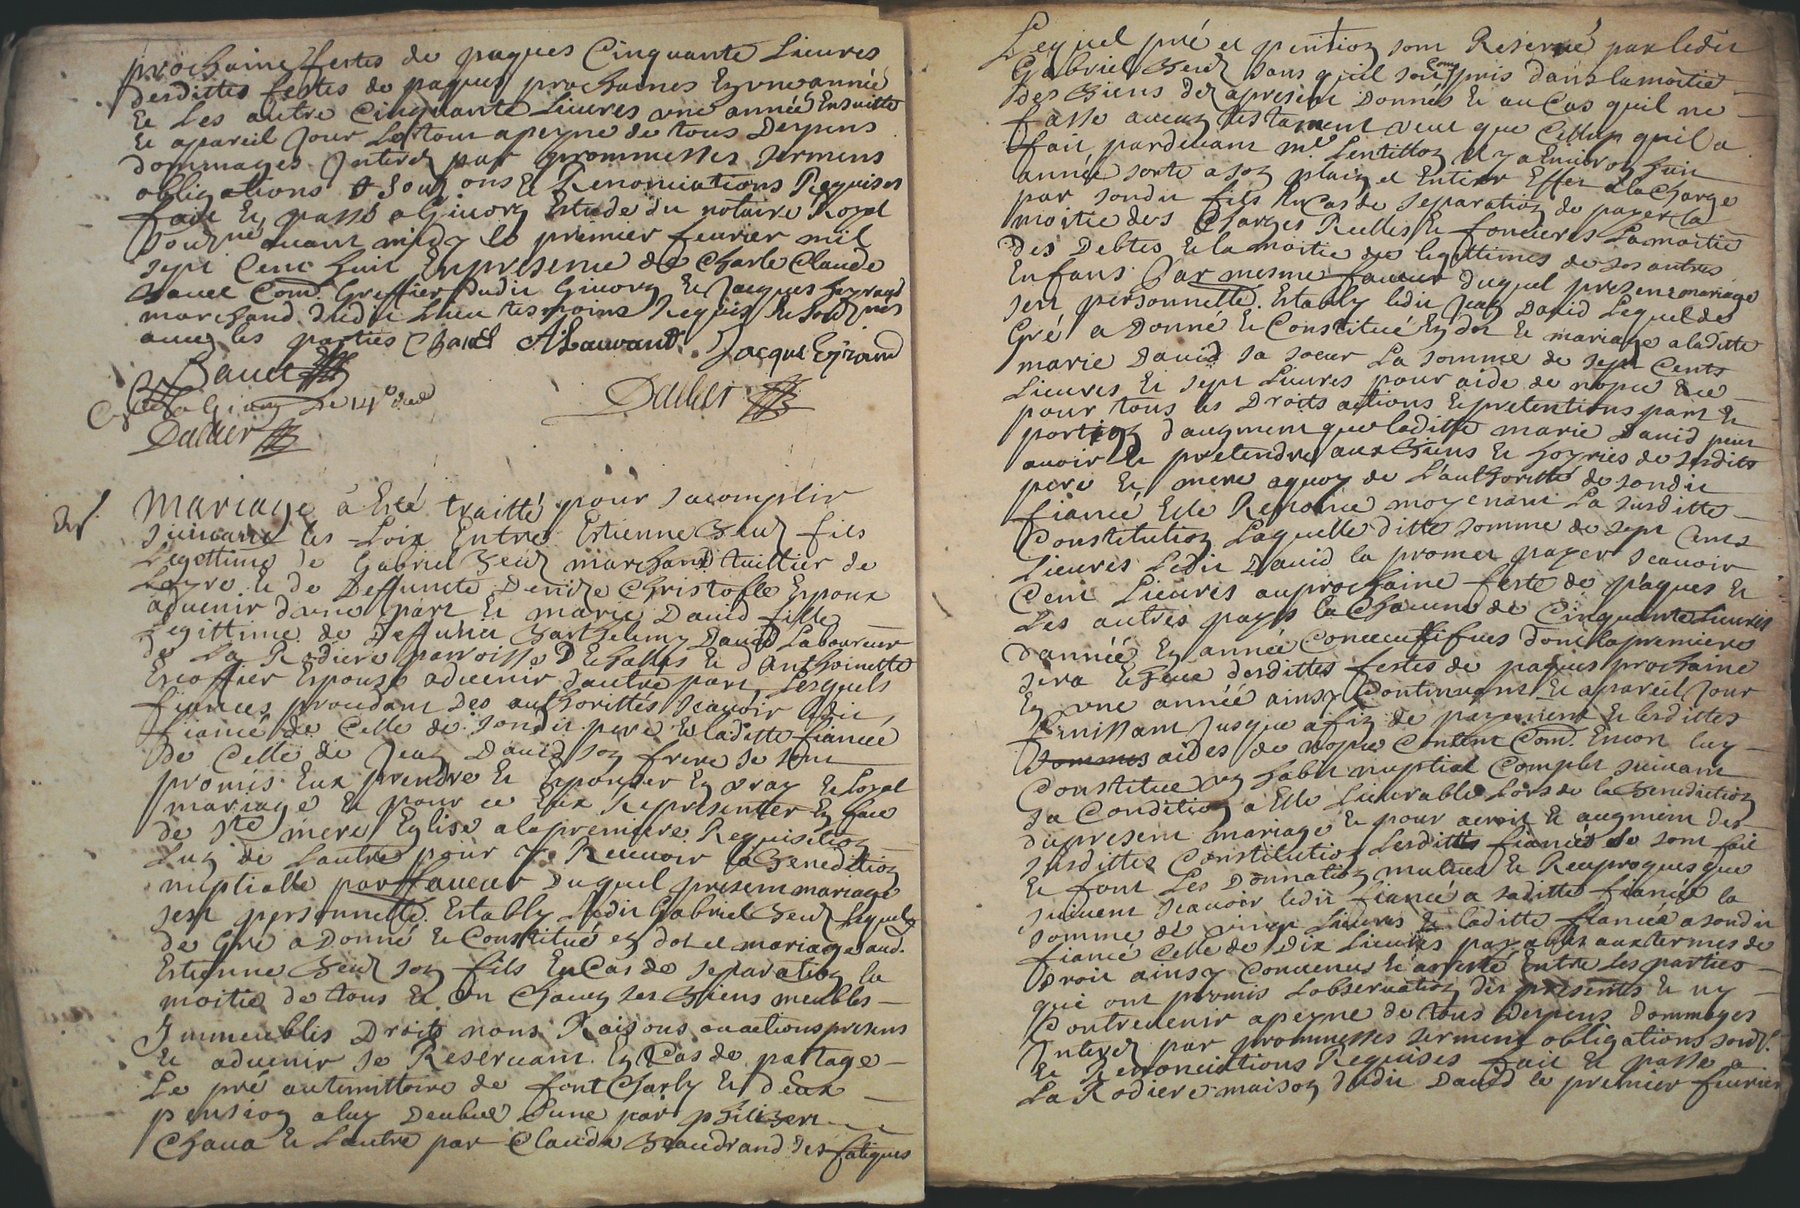 prochaine festes de paques Cinquante Lieures
desdittes festes de paques prochaines En une année
Et Les autre Cinquante Lieures une année Ensuitte
Et apareil Jour Le tout a peyne de tous Depens
dommages Interes par prommesses sermens
obligations & Renonciations Requises
fait Et passé a Giuors Estude du notaire Royal
souzné auant midy le premier feurier mil
sept Cent huit En presence de Charle Claude
Bauet Com. Greffier dudit Giuors Et Jacques Eyraud
marchand dudit Lieu tesmoins Requis Et souznés
auec les parties ALaurant Jacque Eyraud
Bauet
Dallier
Con.lé a Giuors Le 14e dud
Dallier
Exp.
Mariage a Esté traitté pour sacomplir
suiuant les Loix Entre Estienne Beuz fils
Legittime de Gabriel Beuz marchand de
Loyre Et de Deffuncte Denize Christofle Espoux
aduenir dune part Et marie Dauid fille
Legittime de Deffunct Barthelemy Dauid Laboureur
de La Rodiere parroisse DEchallas Et dAnthoinette
Escoffier Espouze aduenir dautre part Lesquels
fiances procedant Des authorittés scauoir Ledit
fiancé de Celle de sondit pere Et laditte fiancée
de Celle de Jean Dauid son frere se sont
promis Eux prendre Et Espouser En vray Et Loyal
mariage Et pour ce Eux Representer En face
de Ste mere Eglise a la premiere Requisition
Lun de Lautre pour y Receuoir la Benediction
nuptialle par faueur Duquel present mariage
sest personnelle. Estably Ledit Gabriel Beuz Lequel
de Gré a Donné Et Constitué en dot et mariage aud.
Estienne Beuz son fils En Cas de separation la
moitié de tous Et un Chacun ses Biens meubles
Immeubles Droits noms Raisons ou actions presens
Et aduenir se Reseruant En Cas de partage
Le pré au territtoire de font Charly Et deux
pension a luy Deubue Lune par philibert
Chaua Et Lautre par Claude Beaudrand des fatiques
Lequel pré et pention sont Reserué par ledit
Gabriel Beuz sans quil soit Compris dans la moitié
des Biens dez apresent Donnés Et au Cas quil ne
fasse aucun testament veut que Celluy quil a
fait pardeuant me Lentillon il y a Enuiron huit
année sorte a son plain et Entier Effet a la Charge
par sondit fils En Cas de separation de payer la
moitié des Charges Reelles Et foncieres La moitié
des Debtes Et la moitié des legittimes de ses autres
Enfans Par mesme faueur duquel present mariage
sest personnelle. Estably ledit Jean Dauid Lequel de
Gré a Donné Et Constitué En dot Et mariage a laditte
marie Dauid sa soeur La somme de sept Cents
Lieures Et sept Lieures pour aide de nopce Et ce
pour tous les Droits actions Et pretentions part Et
portion daugment que laditte marie Dauid peut
auoir Et pretendre aux Biens Et hoyries de sesdits
pere Et mere aquoy de Lauthoritté de sondit
fiancé Elle Renonce moyenant La susditte
Constitution Laquelle ditte somme de sept Cents
Lieures Ledit Dauid la promet payer scauoir
Cent Lieures au prochaine feste de paques Et
Les autres payes la Chacune de Cinquante Lieures
dannéé En année Consecutifues dont la premiere
sera Escheue desdittes festes de paques prochaine
En une année ainsy Continuant Et apareil Jour
finissant Jusque afin de payement Et lesdittes
sommes aides de nopce Content Com. Encor luy
Constitue un habit nuptial Complet suiuant
sa Condition a Elle Liuerable Lors de la Benediction
du present mariage Et pour acroit Et augment des
susdittes Constitution Lesdits fiancés se sont fait
Et font Les Donnation mutues Et Reciproques que
suiuent scauoir ledit fiancé a saditte fiancée la
somme de vingt Lieures Et laditte fiancée a sondit
fiancé Celle de Dix Lieures payables aux termes de
Droit ainsy Conuenus Et arresté Entre Les parties
qui ont promis Lobseruation des presentes Et ny
Contreuenir a peyne de tous Depens dommages
Interes par prommesses serment obligations
Et Renonciations Requises fait Et passé a
La Rodiere maison dudit Dauid le premier feurier